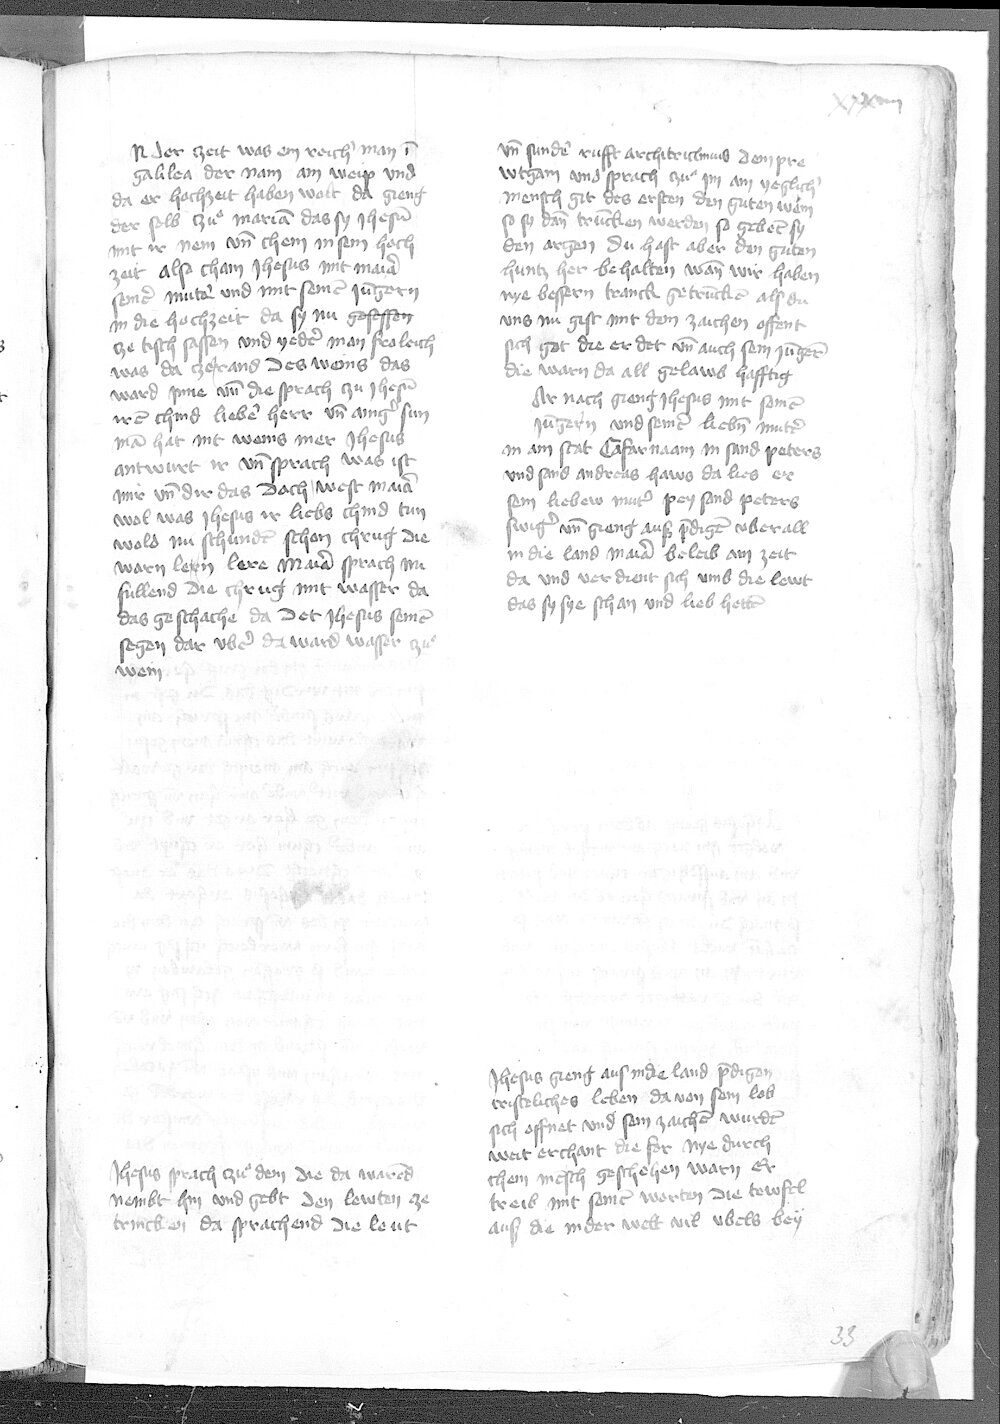 N der zeit was ein reich' man ī
galilea der nam ain weip vnd
da er hochzeit haben wolt da gieng
der selb czuͦ mariā das sy Jhesū
mit ir nem vn̄ chem in sein hoch
zeit also cham Jhesus mit maīa
seine' muter vnd mit seinē Jūgern
in die hochzeit da sy nu gesessen
cze tisch sassen vnd yede' man froleich
was da czerrand des weins das
ward ynne vn̄ die sprach czu Jhesū
irē chind liebe' herr vn̄ ainig' sun
mā hat nit weins mer Jhesus
antwurt ir vn̄ sprach was ist
mir vn̄ dir das Doch west maīa
wol was Jhesus ir liebs chind tun
wold nu schundē schon chrug die
warn lern lere Maīa sprach nu
fullend die chrug mit wasser da
das geschache da Det Jhesus seinē
segen dar vbe' da ward wasser czuͦ
wein
Jhesus sprach czuͦ den die da warēd
nembt hin vnd gebt den lewten cze
trincken da sprachend die leut
vn̄ sunde' rufft architriclinus dem pre
wtgam vnd sprach czuͦ im ain yeglich'
mensch git des ersten den guten wein
so sy dan̄ trūcken werden so gebēt sy
den argen Du hast aber den guten
huntz her behalten wan̄ wir haben
nye bessern tranck getrūckē als du
vns nu gist mit dem zaichen offent
sich got die er det vn̄ auch sein jūgerē
die warn da all gelawb hafftig
Ar nach gieng Jhesus mit seinē
jūgern vnd seine' liebn̄ mute'
in ain stat Cafarnaam in sand peters
vnd sand andreas haws da lies er
sein liebew mut' pey sand peters
swig' vn̄ gieng auss p̄digē vberall
in die land maīa beleib ain zeit
da vnd verdient sich vmb die lewt
das sy sye schan vnd lieb hettē
Jhesus gieng aus in die land p̄digen
cristeliches leben da von sein lob
sich offnet vnd sein zaichē wurdē
weit erchant die for nye durch
chein mēsch geschehen warn Er
treib mit seinē worten die tewfel
auss die in der welt vil vbels bey
33